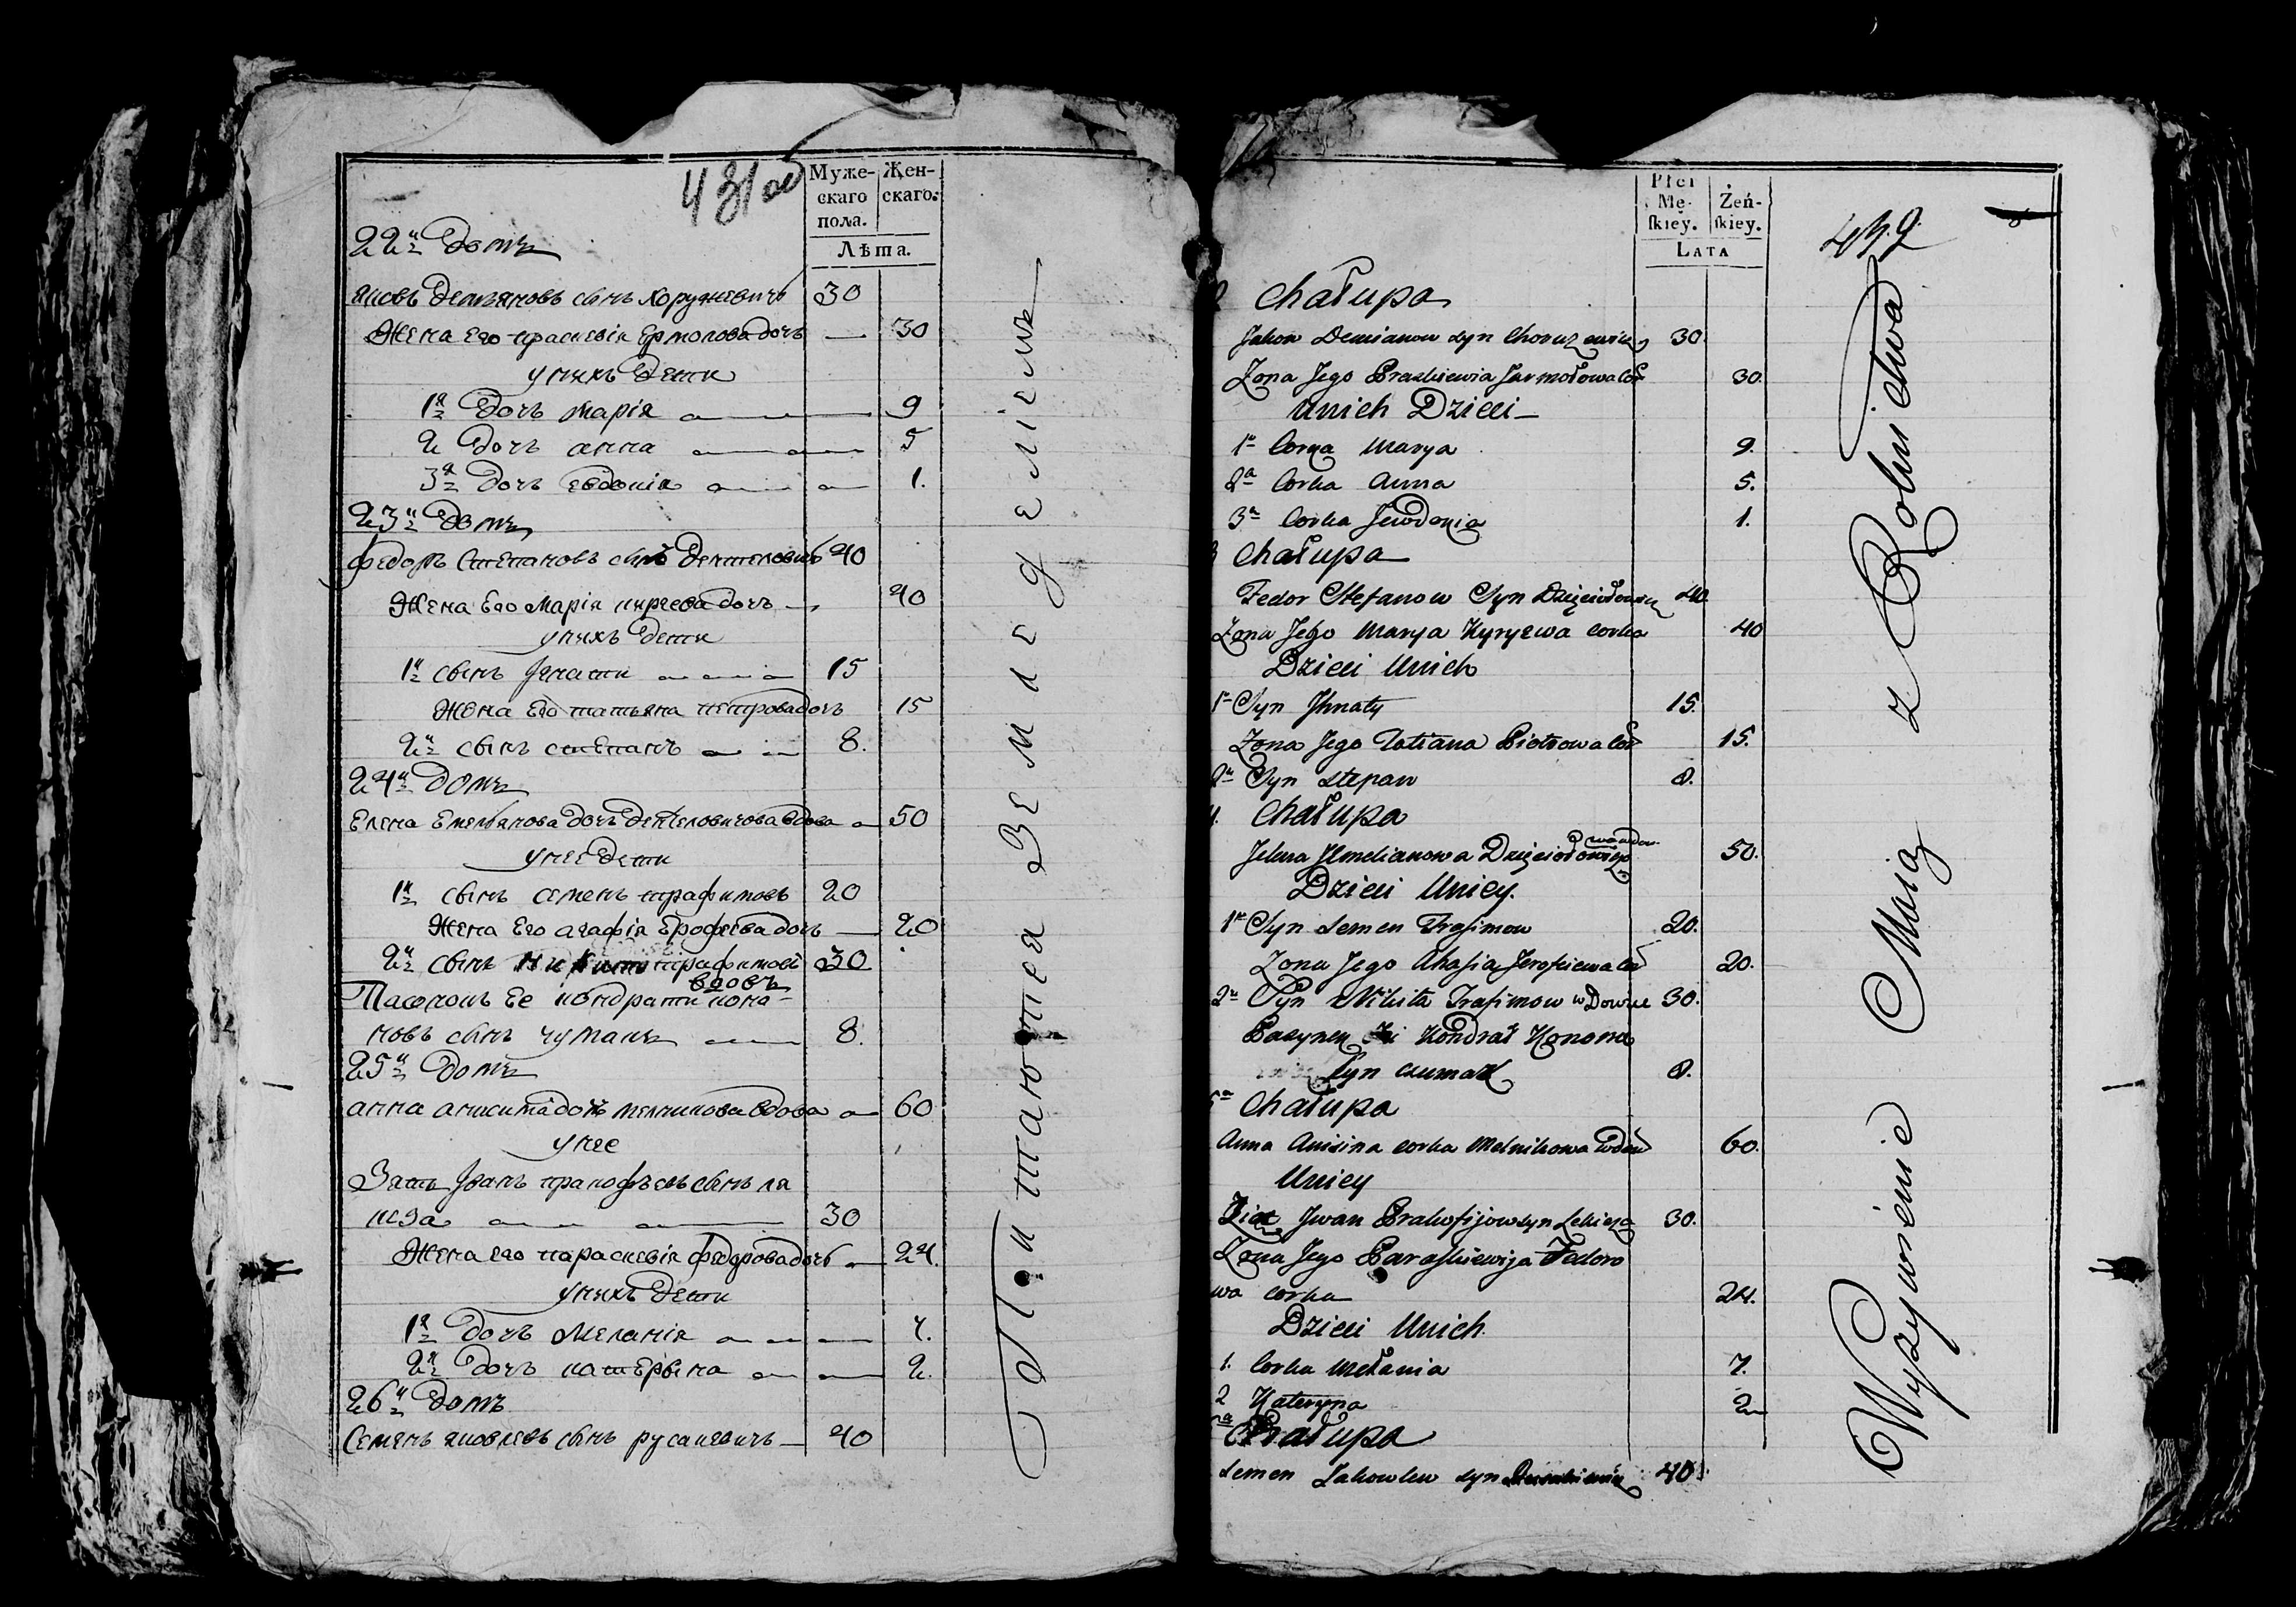 431об
Муже-
скаго
пола.
Жен-
скаго.
Лѣта.
22й Домъ
яковъ Демяновъ сынъ Хоружевичъ 30
Жена Его праскевія Ермолова дочь — 30
у нихъ Дети
1я Дочь Марія 9
2 Дочь анна 5
3я Дочь евдокія 1.
23й Домъ
федоръ Степановъ сынъ Дентеловичъ 40
Жена Его Марія кирѣева дочь 40
у нихъ Дети
1й сынъ Гнати 15
Жена Его татьяна петрова дочь 15
2й сынъ степанъ 8.
24й Домъ
Елена Емельянова Дочь Дентеловичова вдова 50
у нее Дети
1й сынъ семенъ трафимовъ 20
Жена Его агафія Ерофѣева дочь — 20
2й сынъ Никита трафимовъ 30
вдовъ
Пасонокъ Ее кондрати коно-
новъ сынъ чумакъ 8.
25й Домъ
анна анисима дочь мелникова вдова 60
у нее
Зять Іванъ пракофьевъ сынъ ля
кеза 30
Жена его параскевія федорова дочь 24.
у нихъ Дети
1я Дочь Меланія 7.
2я Дочь катерына 2.
26й Домъ
Семенъ яковлевъ сынъ русакевичъ — 40
Питаются Земледелiемъ
Płci
Mę-
skiey.
Żeń-
skiey.
LATA
439
Chałupa
Jakow Demianow syn Choruzewicz 30.
Zona Jego Praskiewia Jarmołowa cor 30.
Unich Dzieci
1a Corka Marya 9.
2a Corka Anna 5.
3a Corka Jewdokia 1.
3 Chałupa
Fedor Stefanow Syn Dzięciołowicz 40
Zona Jego Marya Kyryewa corka 40
Dzieci Unich
1n Syn Jhnaty 15.
Zona Jego Tatiana Piotrowa cor 15.
2n Syn Stepan 8.
4. Chałupa
Jelena Jemelianowa Dzięciołowiczo wa wdow 50.
Dzieci Uniey.
1n Syn Semen Trofimow 20.
Zona Jego Ahafia Jerofiewa cor 20.
2n Syn Nikita Trafimow wDowiec 30.
Pasynek Jei Kondrat Konono
Syn czumak 8.
5a Chałupa
Anna Anisina corka Melnikowa wdow 60.
Uniey
Ziat Jwan Prakofijow syn Lekieza 30.
Zona Jego Paraskiewija Fedoro
wa corka 24.
Dzieci Unich.
1. Corka Mełania 7.
2 Kateryna 2
Chałupa
Semen Jakowlew syn Rusakiewicz 40.
Wyzywienie Maią z Rolnictwa